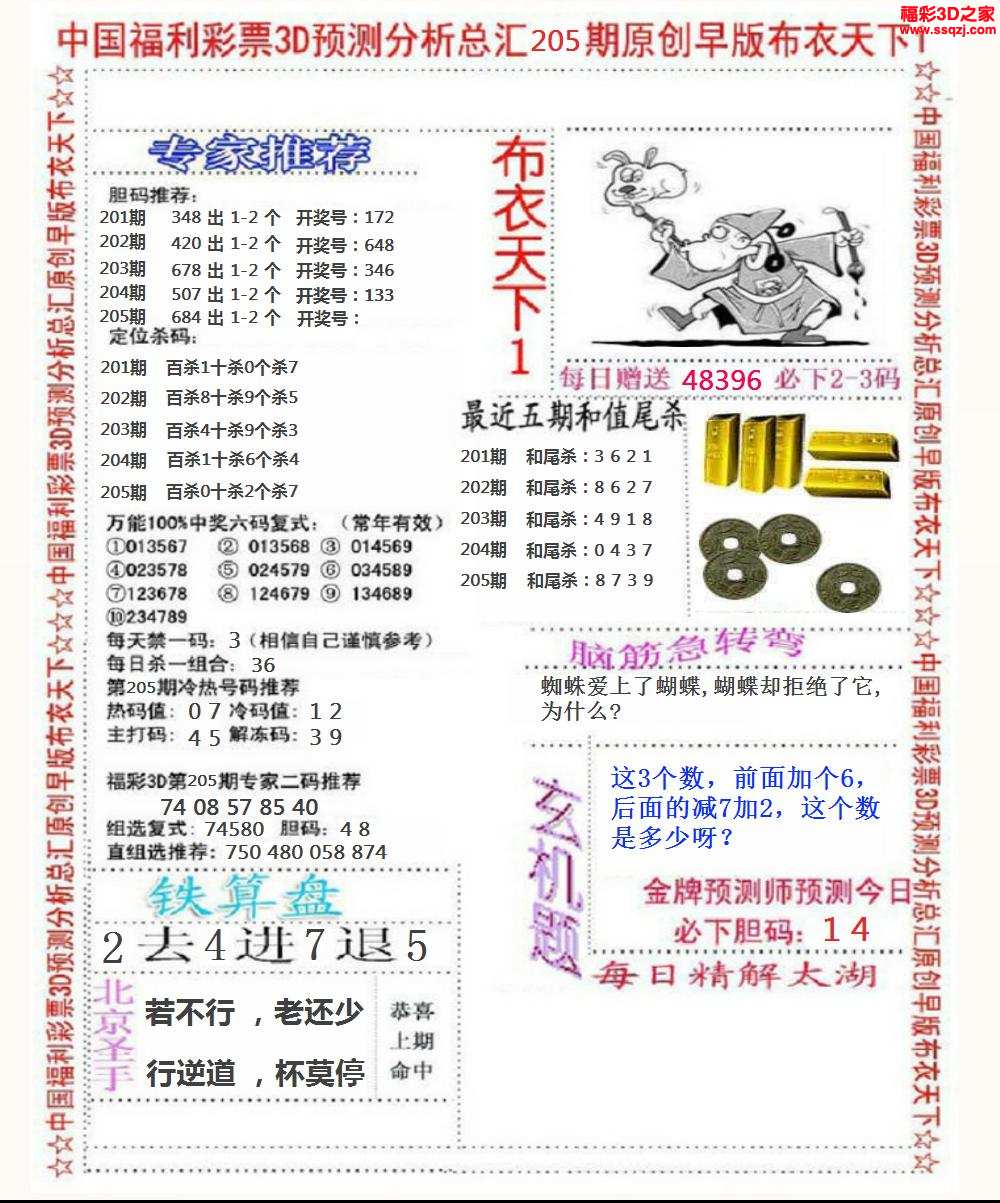 福彩3D之家
www.ssqzj.com
中国福利彩票3D预测分析总汇205期原创早版布衣天下1
☆☆中国福利彩票3D预测分析总汇原创早版布衣天下☆☆中国福利彩票3D预测分析总汇原创早版布衣天下☆☆
专家推荐
胆码推荐：
201期 348 出 1-2 个 开奖号：172
202期 420 出 1-2 个 开奖号：648
203期 678 出 1-2 个 开奖号：346
204期 507 出 1-2 个 开奖号：133
205期 684 出 1-2 个 开奖号：
定位杀码：
201期 百杀1十杀0个杀7
202期 百杀8十杀9个杀5
203期 百杀4十杀9个杀3
204期 百杀1十杀6个杀4
205期 百杀0十杀2个杀7
万能100%中奖六码复式：（常年有效）
①013567 ② 013568 ③ 014569
④023578 ⑤ 024579 ⑥ 034589
⑦123678 ⑧ 124679 ⑨ 134689
⑩234789
每天禁一码：3（相信自己谨慎参考）
每日杀一组合：36
第205期冷热号码推荐
热码值：0 7 冷码值：1 2
主打码：4 5 解冻码：3 9
福彩3D第205期专家二码推荐
74 08 57 85 40
组选复式：74580 胆码：4 8
直组选推荐：750 480 058 874
铁算盘
2去4进7退5
北京圣手
若不行 ，老还少
行逆道 ，杯莫停
恭喜
上期
命中
布衣天下1
每日赠送 48396 必下2-3码
最近五期和值尾杀
201期 和尾杀：3 6 2 1
202期 和尾杀：8 6 2 7
203期 和尾杀：4 9 1 8
204期 和尾杀：0 4 3 7
205期 和尾杀：8 7 3 9
脑筋急转弯
蜘蛛爱上了蝴蝶,蝴蝶却拒绝了它,
为什么?
玄机题
这3个数，前面加个6，
后面的减7加2，这个数
是多少呀？
金牌预测师预测今日
必下胆码：1 4
每日精解太湖
☆☆中国福利彩票3D预测分析总汇原创早版布衣天下☆☆中国福利彩票3D预测分析总汇原创早版布衣天下☆☆